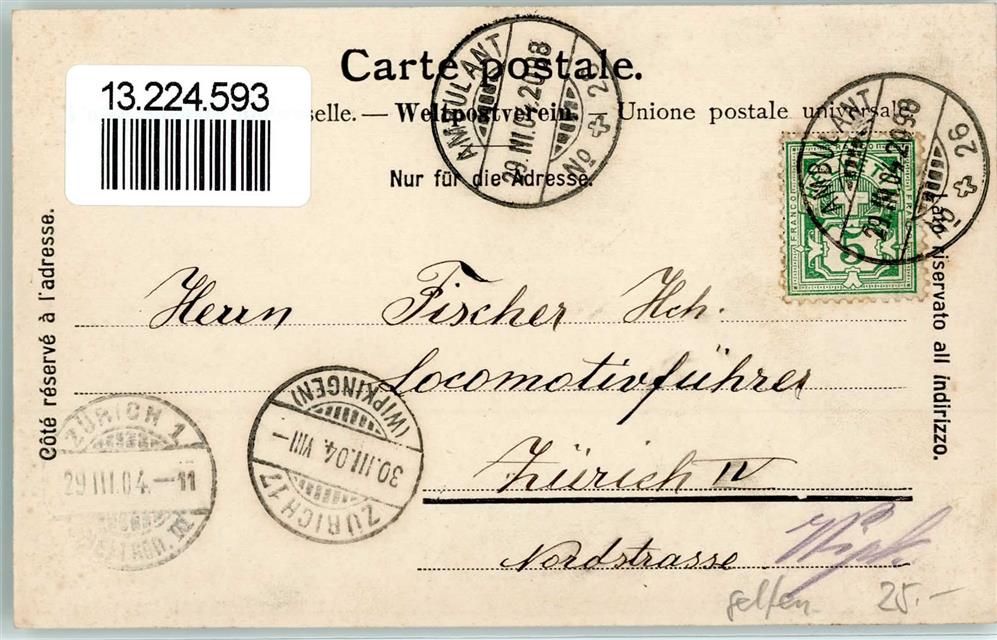 Carte postale.
13.224.593
selle. — Weltpostverein. — Unione postale universale
Nur für die Adresse.
AMBULANT
29.III.04.20
No 26
AMBULANT
29.III.04.20
No 26
5
FRANCO
Côté réservé à l'adresse.
Lato riservato all indirizzo.
Herrn Fischer Hch.
Locomotivführer
Zürich IV
Nordstrasse
Wipk.
ZÜRICH 1
29.III.04.–11
ZÜRICH 17
30.III.04. VIII–
(WIPKINGEN)
selten 25.-